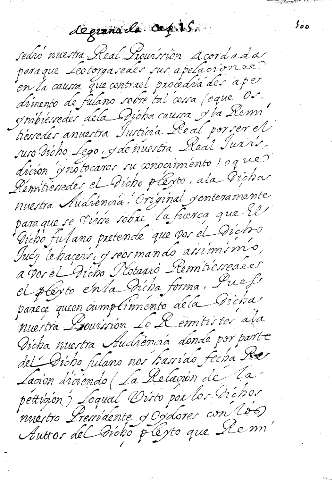 de granada Cap. 15. 100
sedio nuestra Real Provission acordada
para que le otorgasedes sus apelaciones
en la caussa, que contra el procediades a pe
dimento de fulano sobre tal cosa (o que os
ynibiessedes dela Dicha caussa, y la Remi
tiessedes a nuestra Justicia Real por ser el
susodicho lego, y de nuestra Real Juris
dicion, y no tocaros su conocimiento) o que
Remitiessedes el Dicho pleyto, a la Dicha
nuestra Audiencia Original y enteramente
para que se viesse sobre la fuerca que el
Dicho fulano pretende que vos el Dicho
Juez le haceys, y se os mando assimismo,
a vos el Dicho Notario Remitiessedes
el pleyto en la Dicha forma. Pues
parece que en cumplimiento dela Dicha
nuestra Provission lo Remitistes a la
Dicha nuestra Audiencia donde por parte
del Dicho fulano nos ha sido fecha Re
lacion diciendo (la Relacion de la
peticion) lo qual Visto por los Dichos
nuestro Presidente, y Oydores con los
Auttos del Dicho pleyto que Remi